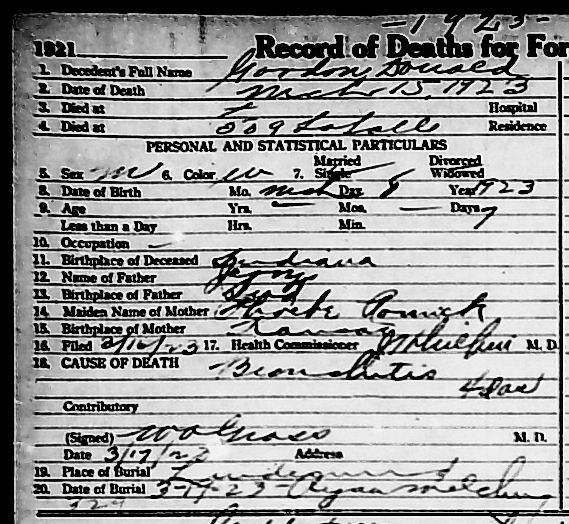 -1923-
1921 Record of Deaths for For
1. Decedent's Full Name Gordon Donald
2. Date of Death Mch 15, 1923
3. Died at Hospital
4. Died at 509 LaSalle Residence
PERSONAL AND STATISTICAL PARTICULARS
Married Divorced
5. Sex M 6. Color W 7. Single Widowed
8. Date of Birth Mo. Mch Day 8 Year 1923
9. Age Yrs. — Mos. — Days 7
Less than a Day Hrs. Min.
10. Occupation —
11. Birthplace of Deceased Indiana
12. Name of Father
13. Birthplace of Father
14. Maiden Name of Mother Phoebe
15. Birthplace of Mother Kansas
16. Filed 3/16/23 17. Health Commissioner M. D.
18. CAUSE OF DEATH Bronchitis
4 das
Contributory
(Signed) M. D.
Date 3/17/23 Address
19. Place of Burial Lindenwood
20. Date of Burial 3-17-23